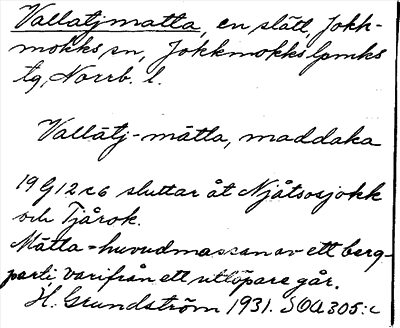 Vallatjmatta, en slätt, Jokk-
mokks sn, Jokkmokks lpmks
tg, Norrb. l.
Vallātj-mātta, maddaka
19 G 12 c 6 sluttar åt Njåtsosjokk
och Tjårok.
Mātta = huvudmassan av ett berg-
parti, varifrån ett utlöpare går.
H. Grundström 1931. SOA 305:c